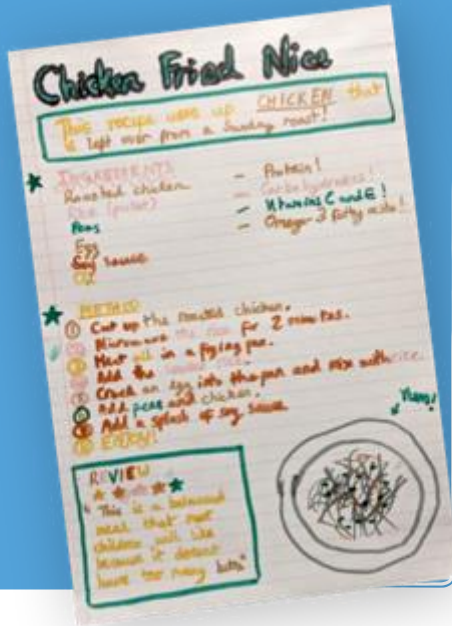 Chicken Fried Nice
This recipe uses up CHICKEN that
is left over from a Sunday roast!
INGREDIENTS
Roasted chicken – Protein!
Rice (packet) – Carbohydrates!
Peas – Vitamins C and E!
Egg – Omega 3 fatty acids!
Soy sauce
Oil
METHOD
① Cut up the roasted chicken.
② Microwave the rice for 2 minutes.
③ Heat oil in a frying pan.
④ Add the rice.
⑤ Crack an egg into the pan and mix with rice.
⑥ Add peas and chicken.
⑦ Add a splash of soy sauce
⑧ ENJOY!
Yum!
REVIEW
"This is a balanced
meal that most
children will like
because it doesn't
have too many bits"